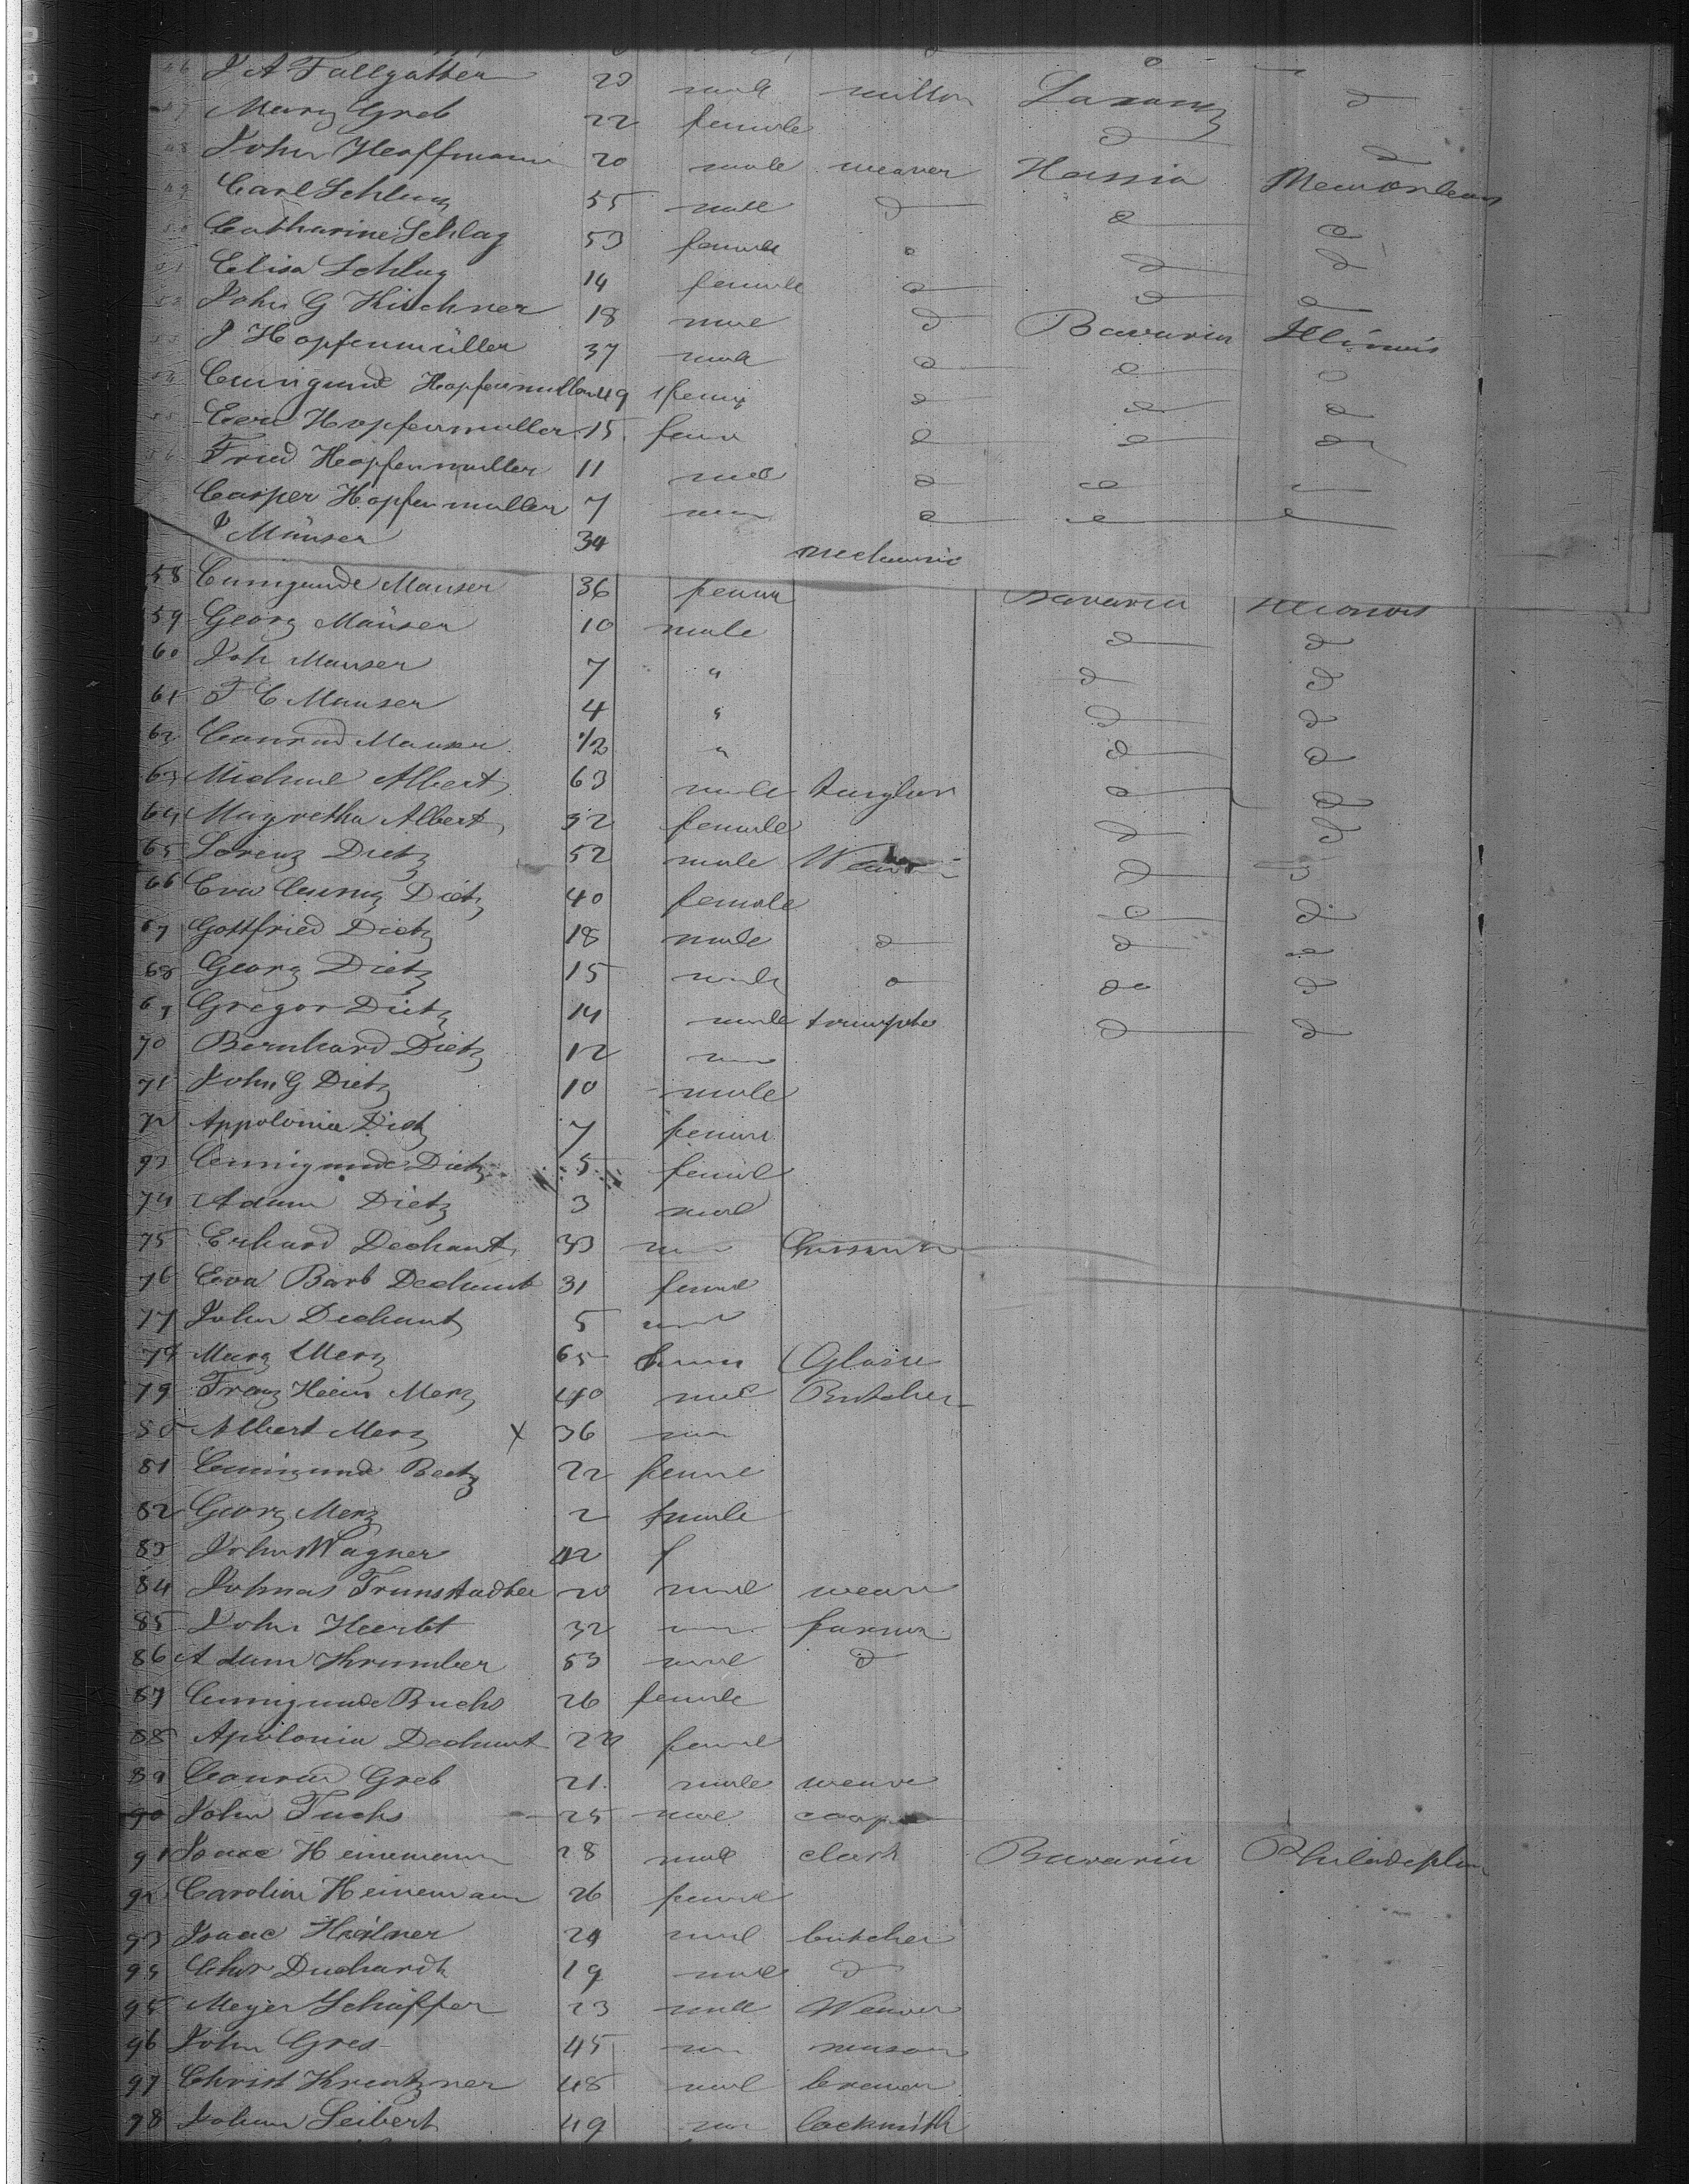 46 J A Fallgatter 20 male
47 Mary Greb 22 female d
48 John Hoffmann 20 male weaver Hassia New Orleans
49 Carl Schlug 55 male d d d
50 Catharine Schlag 53 female d d d
51 Elisa Schlug 14 female d d d
52 John G Kirchner 18 male d Bavaria Illinois
53 J Hopfenmüller 37 male d d d
54 Cunigund Hopfenmuller 49 fem d d d
55 Eva Hopfenmuller 15 fem d d d
56 Fried Hopfenmuller 11 male d d
Casper Hopfenmuller 7 d
J Mäuser 34 mechanic
58 Cunigunde Mauser 36 female Bavaria Illinois
59 Georg Mäuser 10 male d d
60 Joh Mauser 7 " d d
61 F C Mauser 4 " d d
62 Conrad Mauser 1/2 " d d
63 Michael Albert 63 male d d
64 Magretha Albert 52 female d d
65 Lorenz Dietz 52 male Weaver d
66 Eva Cunig Dietz 40 female d d
67 Gottfried Dietz 18 male d d d
68 Georg Dietz 15 male d do d
69 Gregor Dietz 14 male d d
70 Bernhard Dietz 12
71 John G Dietz 10 male
72 Appolonia Dietz 7 female
73 Cunnigunde Dietz 5 female
74 Adam Dietz 3 male
75 Erhard Dechant 33
76 Eva Barb Dechant 31 female
77 John Dechant 5
78 Marg Merz 65
79 Franz Hein Merz 40 male Butcher
80 Albert Merz X 36
81 Cunigunde Beetz 22 female
82 Georg Merz 2 male
83 John Wagner 42 f
84 Johnas Trunstadter 20 male weaver
85 John Heerbt 32 farmer
86 Adam Krumber 53 male d
87 Cunnigunde Buchs 26 female
88 Apolonia Dechant 20 female
89 Conrad Greb 21 male weaver
90 John Fuchs 25 male
91 Isaac Heinemann 28 male clerk Bavaria Philadelphia
92 Caroline Heinemann 26 female
93 Isaac Heilner 24 male butcher
94 Chr Duchardt 19 male d
95 Meyer Schäffer 23 male Weaver
96 John Gres 45 mason
97 Christ Kreutzner 48 male brewer
98 Johann Seibert 49 locksmith